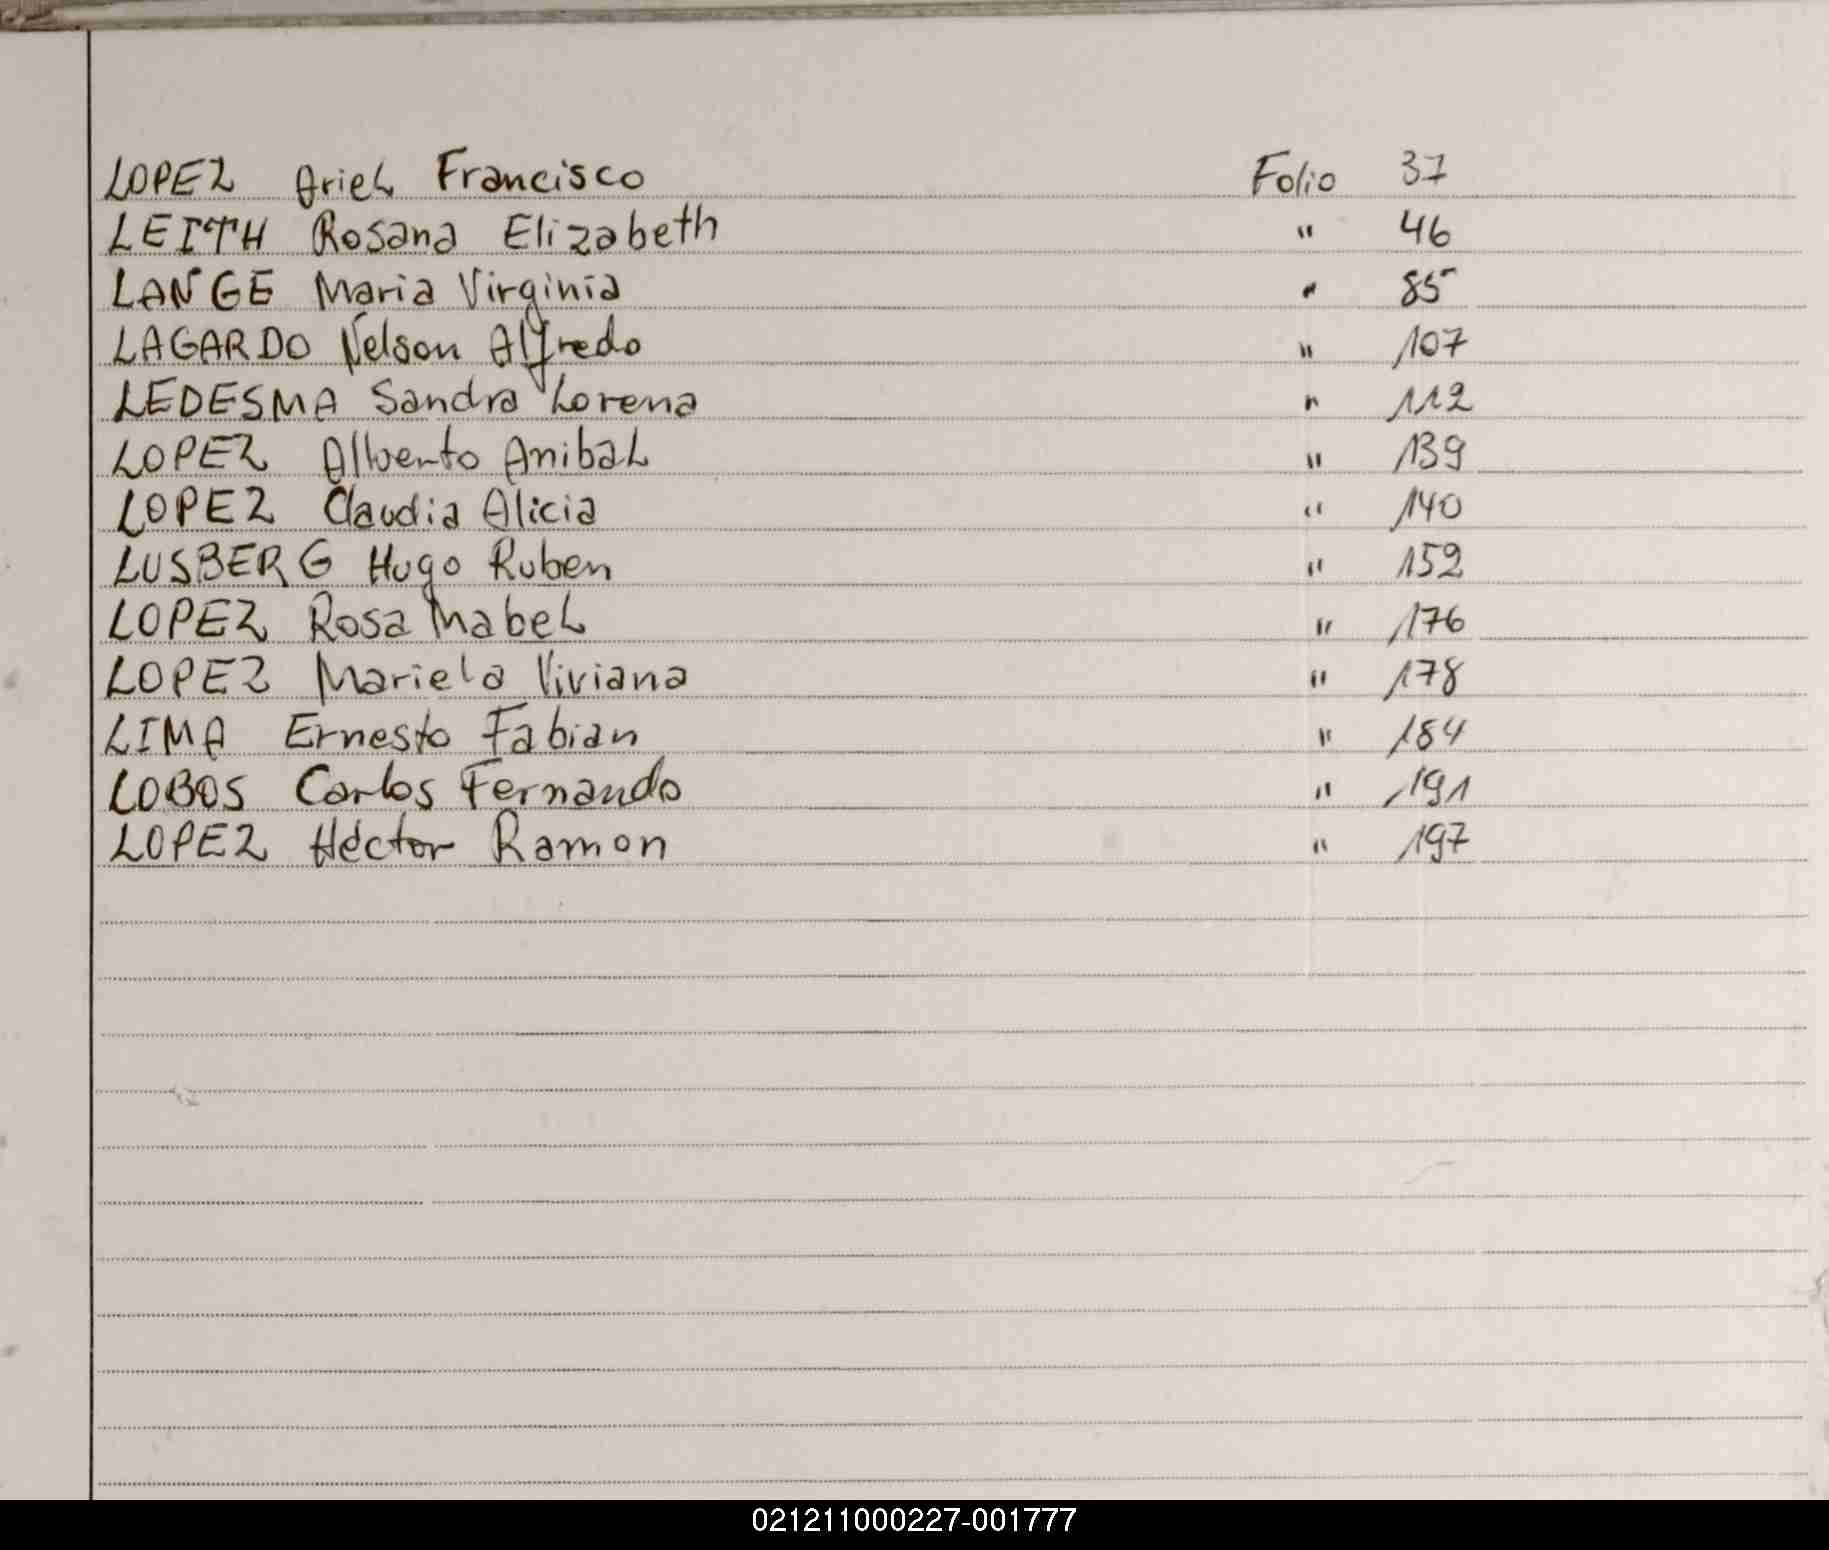 LOPEZ Ariel Francisco Folio 37
LEITH Rosana Elizabeth " 46
LANGE Maria Virginia " 85
LAGARDO Nelson Alfredo " 107
LEDESMA Sandra Lorena " 112
LOPEZ Alberto Anibal " 139
LOPEZ Claudia Alicia " 140
LUSBERG Hugo Ruben " 152
LOPEZ Rosa Mabel " 176
LOPEZ Mariela Viviana " 178
LIMA Ernesto Fabian " 184
LOBOS Carlos Fernando " 191
LOPEZ Héctor Ramon " 197
021211000227-001777